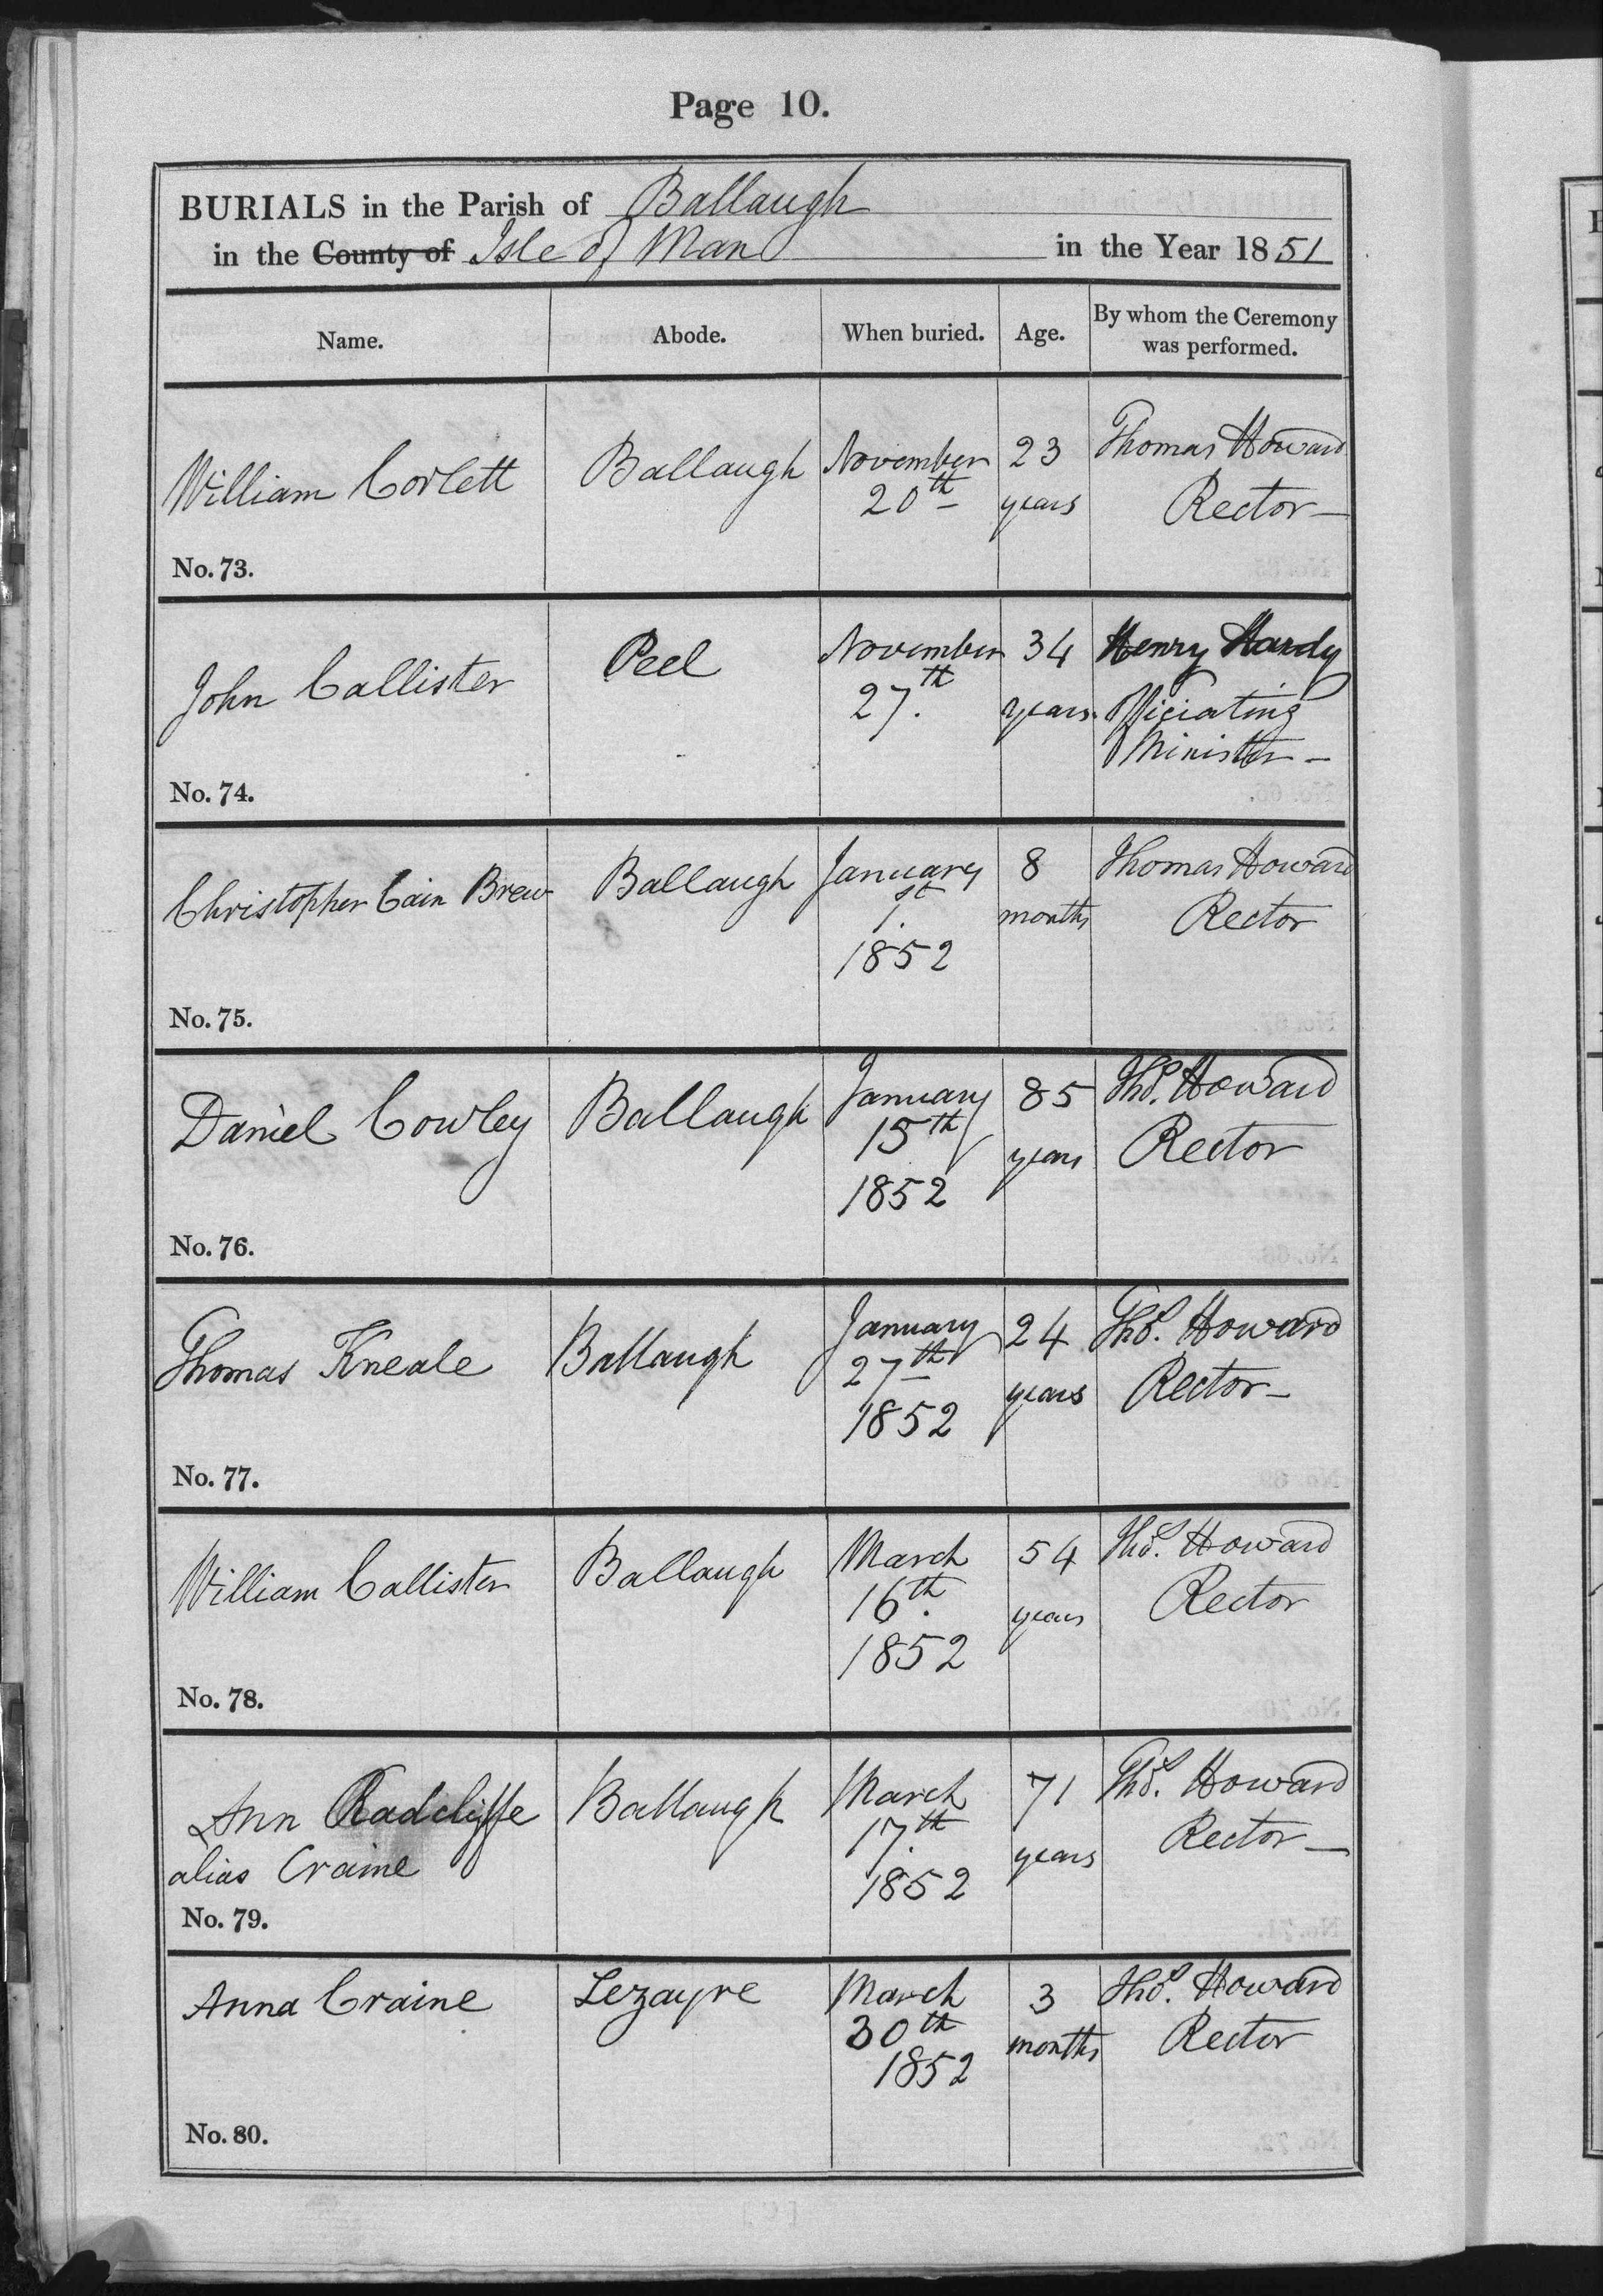 Page 10.
BURIALS in the Parish of Ballaugh
in the County of Isle of Man in the Year 1851
Name. Abode. When buried. Age. By whom the Ceremony was performed.
William Corlett Ballaugh November 20th 23 years Thomas Howard Rector
No. 73.
John Callister Peel November 27th. 34 years. Henry Hardy Officiating Minister
No. 74.
Christopher Cain Brew Ballaugh January 1st. 1852 8 months Thomas Howard Rector
No. 75.
Daniel Cowley Ballaugh January 15th 1852 85 years Thos. Howard Rector
No. 76.
Thomas Kneale Ballaugh January 27th 1852 24 years Thos. Howard Rector
No. 77.
William Callister Ballaugh March 16th. 1852 54 years Thos. Howard Rector
No. 78.
Ann Radcliffe alias Craine Ballaugh March 17th. 1852 71 years Thos. Howard Rector
No. 79.
Anna Craine Lezayre March 30th 1852 3 months Thos. Howard Rector
No. 80.